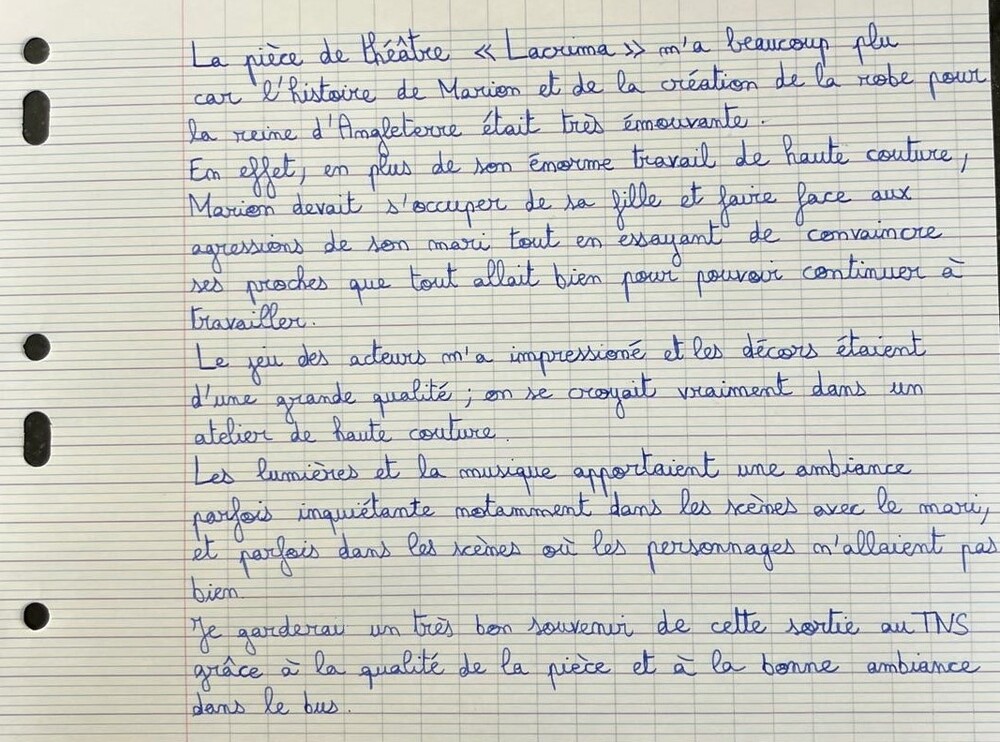 La pièce de théâtre « Lacrima » m'a beaucoup plu
car l'histoire de Marion et de la création de la robe pour
la reine d'Angleterre était très émouvante.
En effet, en plus de son énorme travail de haute couture,
Marion devait s'occuper de sa fille et faire face aux
agressions de son mari tout en essayant de convaincre
ses proches que tout allait bien pour pouvoir continuer à
travailler.
Le jeu des acteurs m'a impressioné et les décors étaient
d'une grande qualité ; on se croyait vraiment dans un
atelier de haute couture.
Les lumières et la musique apportaient une ambiance
parfois inquiétante notamment dans les scènes avec le mari,
et parfois dans les scènes où les personnages n'allaient pas
bien.
Je garderai un très bon souvenir de cette sortie au TNS
grâce à la qualité de la pièce et à la bonne ambiance
dans le bus.